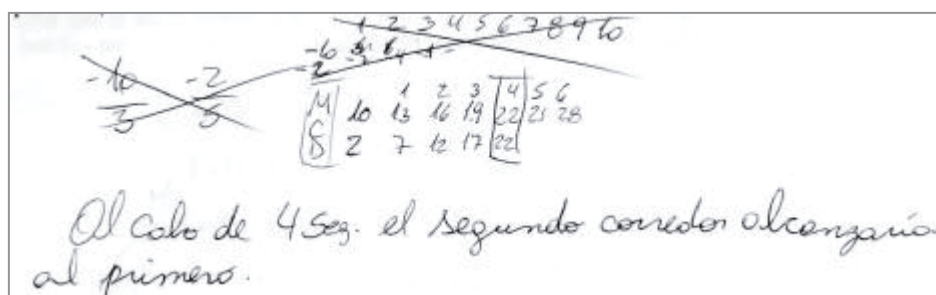 1 2 3 4 5 6 7 8 9 10
-10/3 -2/5
1 2 3 4 5 6
M 10 13 16 19 22 25 28
S 2 7 12 17 22
Al cabo de 4 Seg. el segundo corredor alcanzaría
al primero.